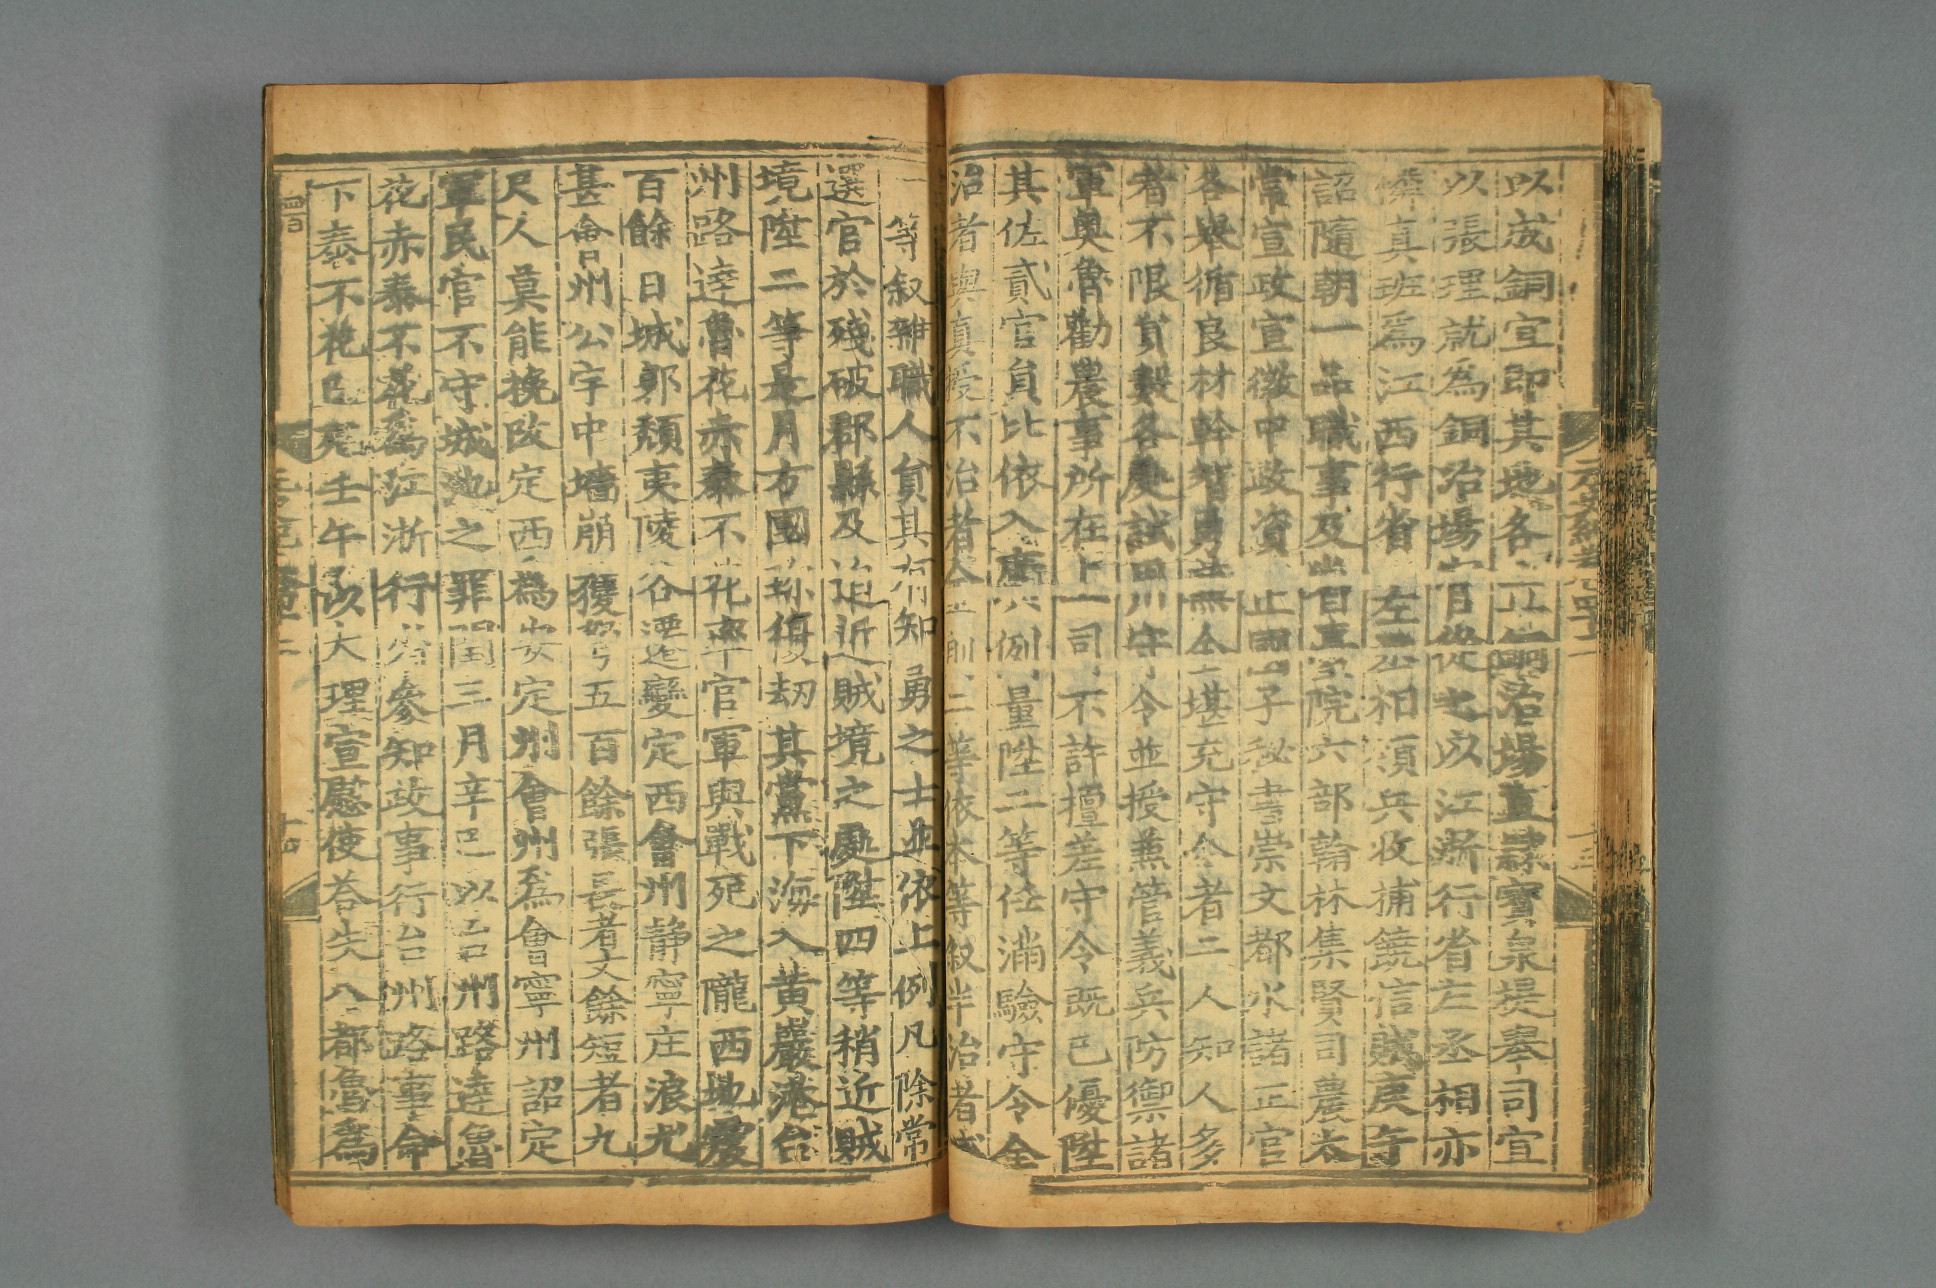 以成銅宣即其地各立銅冶場直隸寶泉提舉司宣
以張理就為銅冶場官從之以江浙行省左丞相亦
憐真班為江西行省左丞相領兵收捕饒信賊庚寅
詔隨朝一品職事及省臺院六部翰林集賢司農太
常宣政宣徽中政資正國子秘書崇文都水諸正官
各舉循良材幹智勇兼全堪充守令者二人知人多
者不限員數各處試用守令並授兼管義兵防禦諸
軍奧魯勸農事所在上司不許擅差守令既已優陞
其佐貳官員比依入廣例量陞二等任滿驗守令全
治者與真授不治者全削二等依本等叙半治者減
一等叙雜職人員其有知勇之士並依上例凡除常
選官於殘破郡縣及迫近賊境之處陞四等稍近賊
境陞二等是月方國珍復劫其黨下海入黃巖港台
州路達魯花赤泰不花率官軍與戰死之隴西地震
百餘日城郭頹夷陵谷遷變定西會州靜寧庄浪尤
甚會州公宇中墻崩獲弩五百餘張長者丈餘短者九
尺人莫能挽改定西為安定州會州為會寧州詔定
軍民官不守城池之罪閏三月辛巳以台州路達魯
花赤泰不花為江浙行省參知政事行台州路事命
下泰不花已死壬午以大理宣慰使荅失八都魯為
元史紀卷四十二
十三
十四